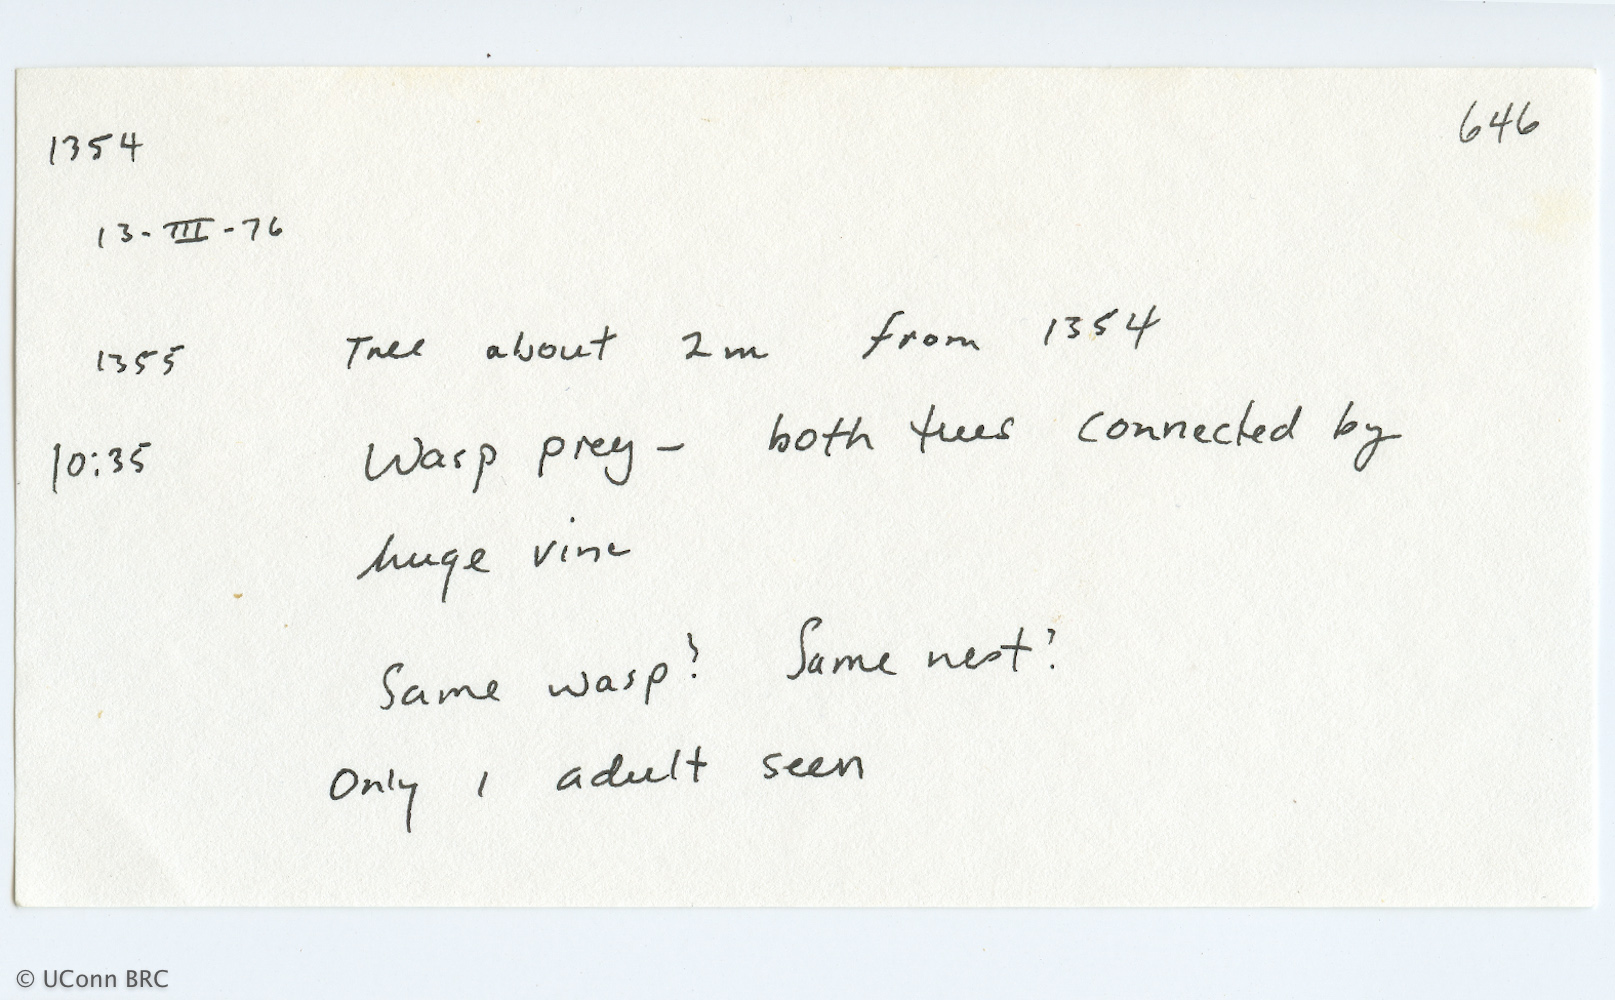 1354
646
13-III-76
1355 Tree about 2m from 1354
10:35 Wasp prey - both trees connected by
huge vine
Same wasp? Same nest?
Only 1 adult seen
© UConn BRC